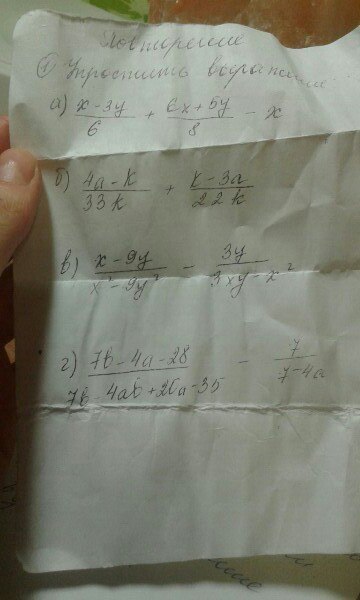 Повторение
① Упростить выражение
а) x-3y/6 + 6x+5y/8 - x
б) 4a-k/33k + k-3a/22k
в) x-9y/x²-9y² - 3y/3xy-x²
г) 7b-4a-28/7b-4ab+20a-35 - 7/7-4a